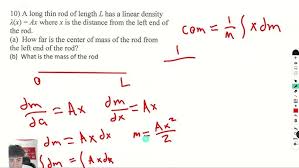 10) A long thin rod of length L has a linear density
λ(x) = Ax where x is the distance from the left end of
the rod.
(a) How far is the center of mass of the rod from
the left end of the rod?
(b) What is the mass of the rod
com = 1/m ∫ x dm
1
O L
dm/da = Ax dm/dx = Ax
dm = Ax dx m = Ax²/2
∫dm = ∫Ax dx